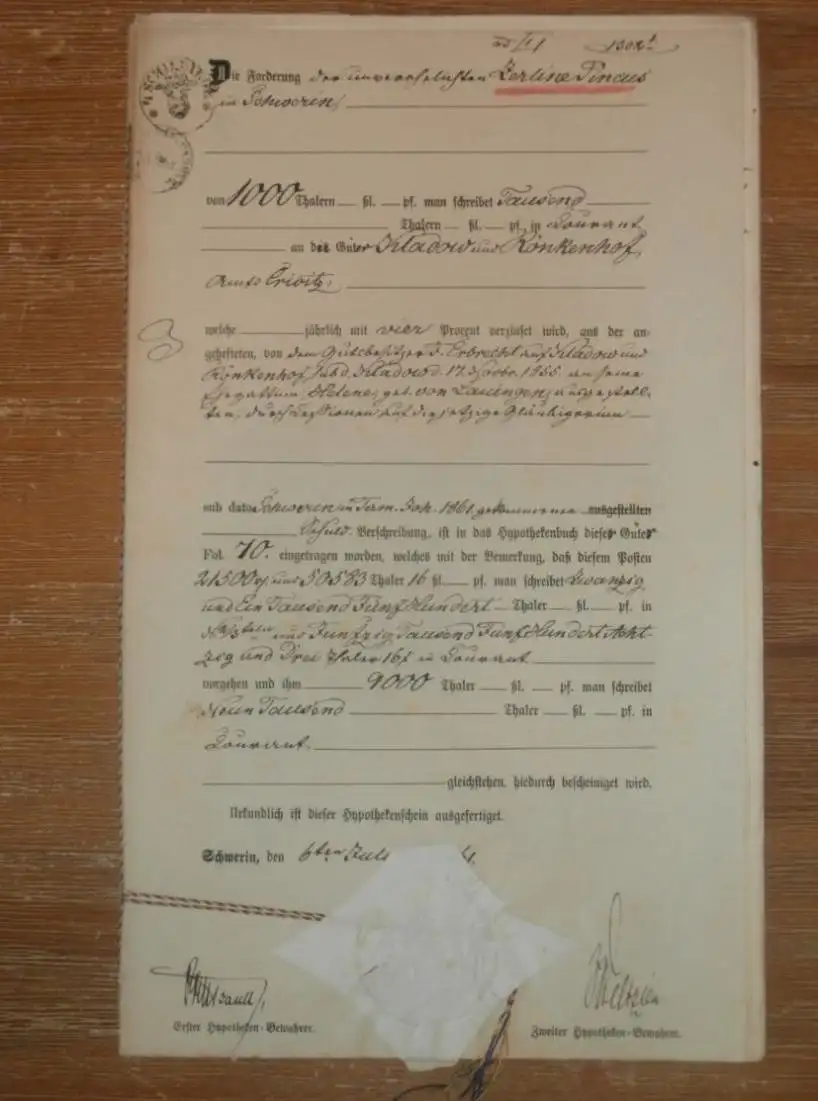 Die Forderung der unverehelichten Zerline Pincus
in Schwerin,
von 1000 Thalern — ßl. — pf. man schreibet Tausend
Thalern — ßl. — pf. in Courant
an des Güter Kladow und Rönkenhof,
Amts Crivitz,
welche jährlich mit vier Procent verzinset wird, aus der an-
gehefteten, von dem Gutsbesitzer F. Erbrecht auf Kladow und
Rönkenhof, sub d. Kladow d. 17. 1855 an seine
Ehegattin, Helene, geb. von Lauingen, ausgestell-
ten, durch Cessionen auf die jetzige Gläubigerin
sub dato Schwerin in Term. Joh. 1861 gekommenen ausgestellten
Schuld-Verschreibung, ist in das Hypothekenbuch dieses Gutes
Fol. 70. eingetragen worden, welches mit der Bemerkung, daß diesem Posten
21500 und 50583 Thaler 16 ßl. — pf. man schreibet Zwanzig
und Ein Tausend Fünf Hundert Thaler — ßl. — pf. in
und Funfzig Tausend Fünf Hundert Acht-
zig und Drei Thaler 16 ß in Courant
vorgehen und ihm 9000 Thaler — ßl. — pf. man schreibet
Neun Tausend Thaler — ßl. — pf. in
Courant
gleichstehen, hiedurch bescheiniget wird.
Urkundlich ist dieser Hypothekenschein ausgefertiget.
Schwerin, den 6ten
Erster Hypotheken-Bewahrer.
Zweiter Hypotheken-Bewahrer.